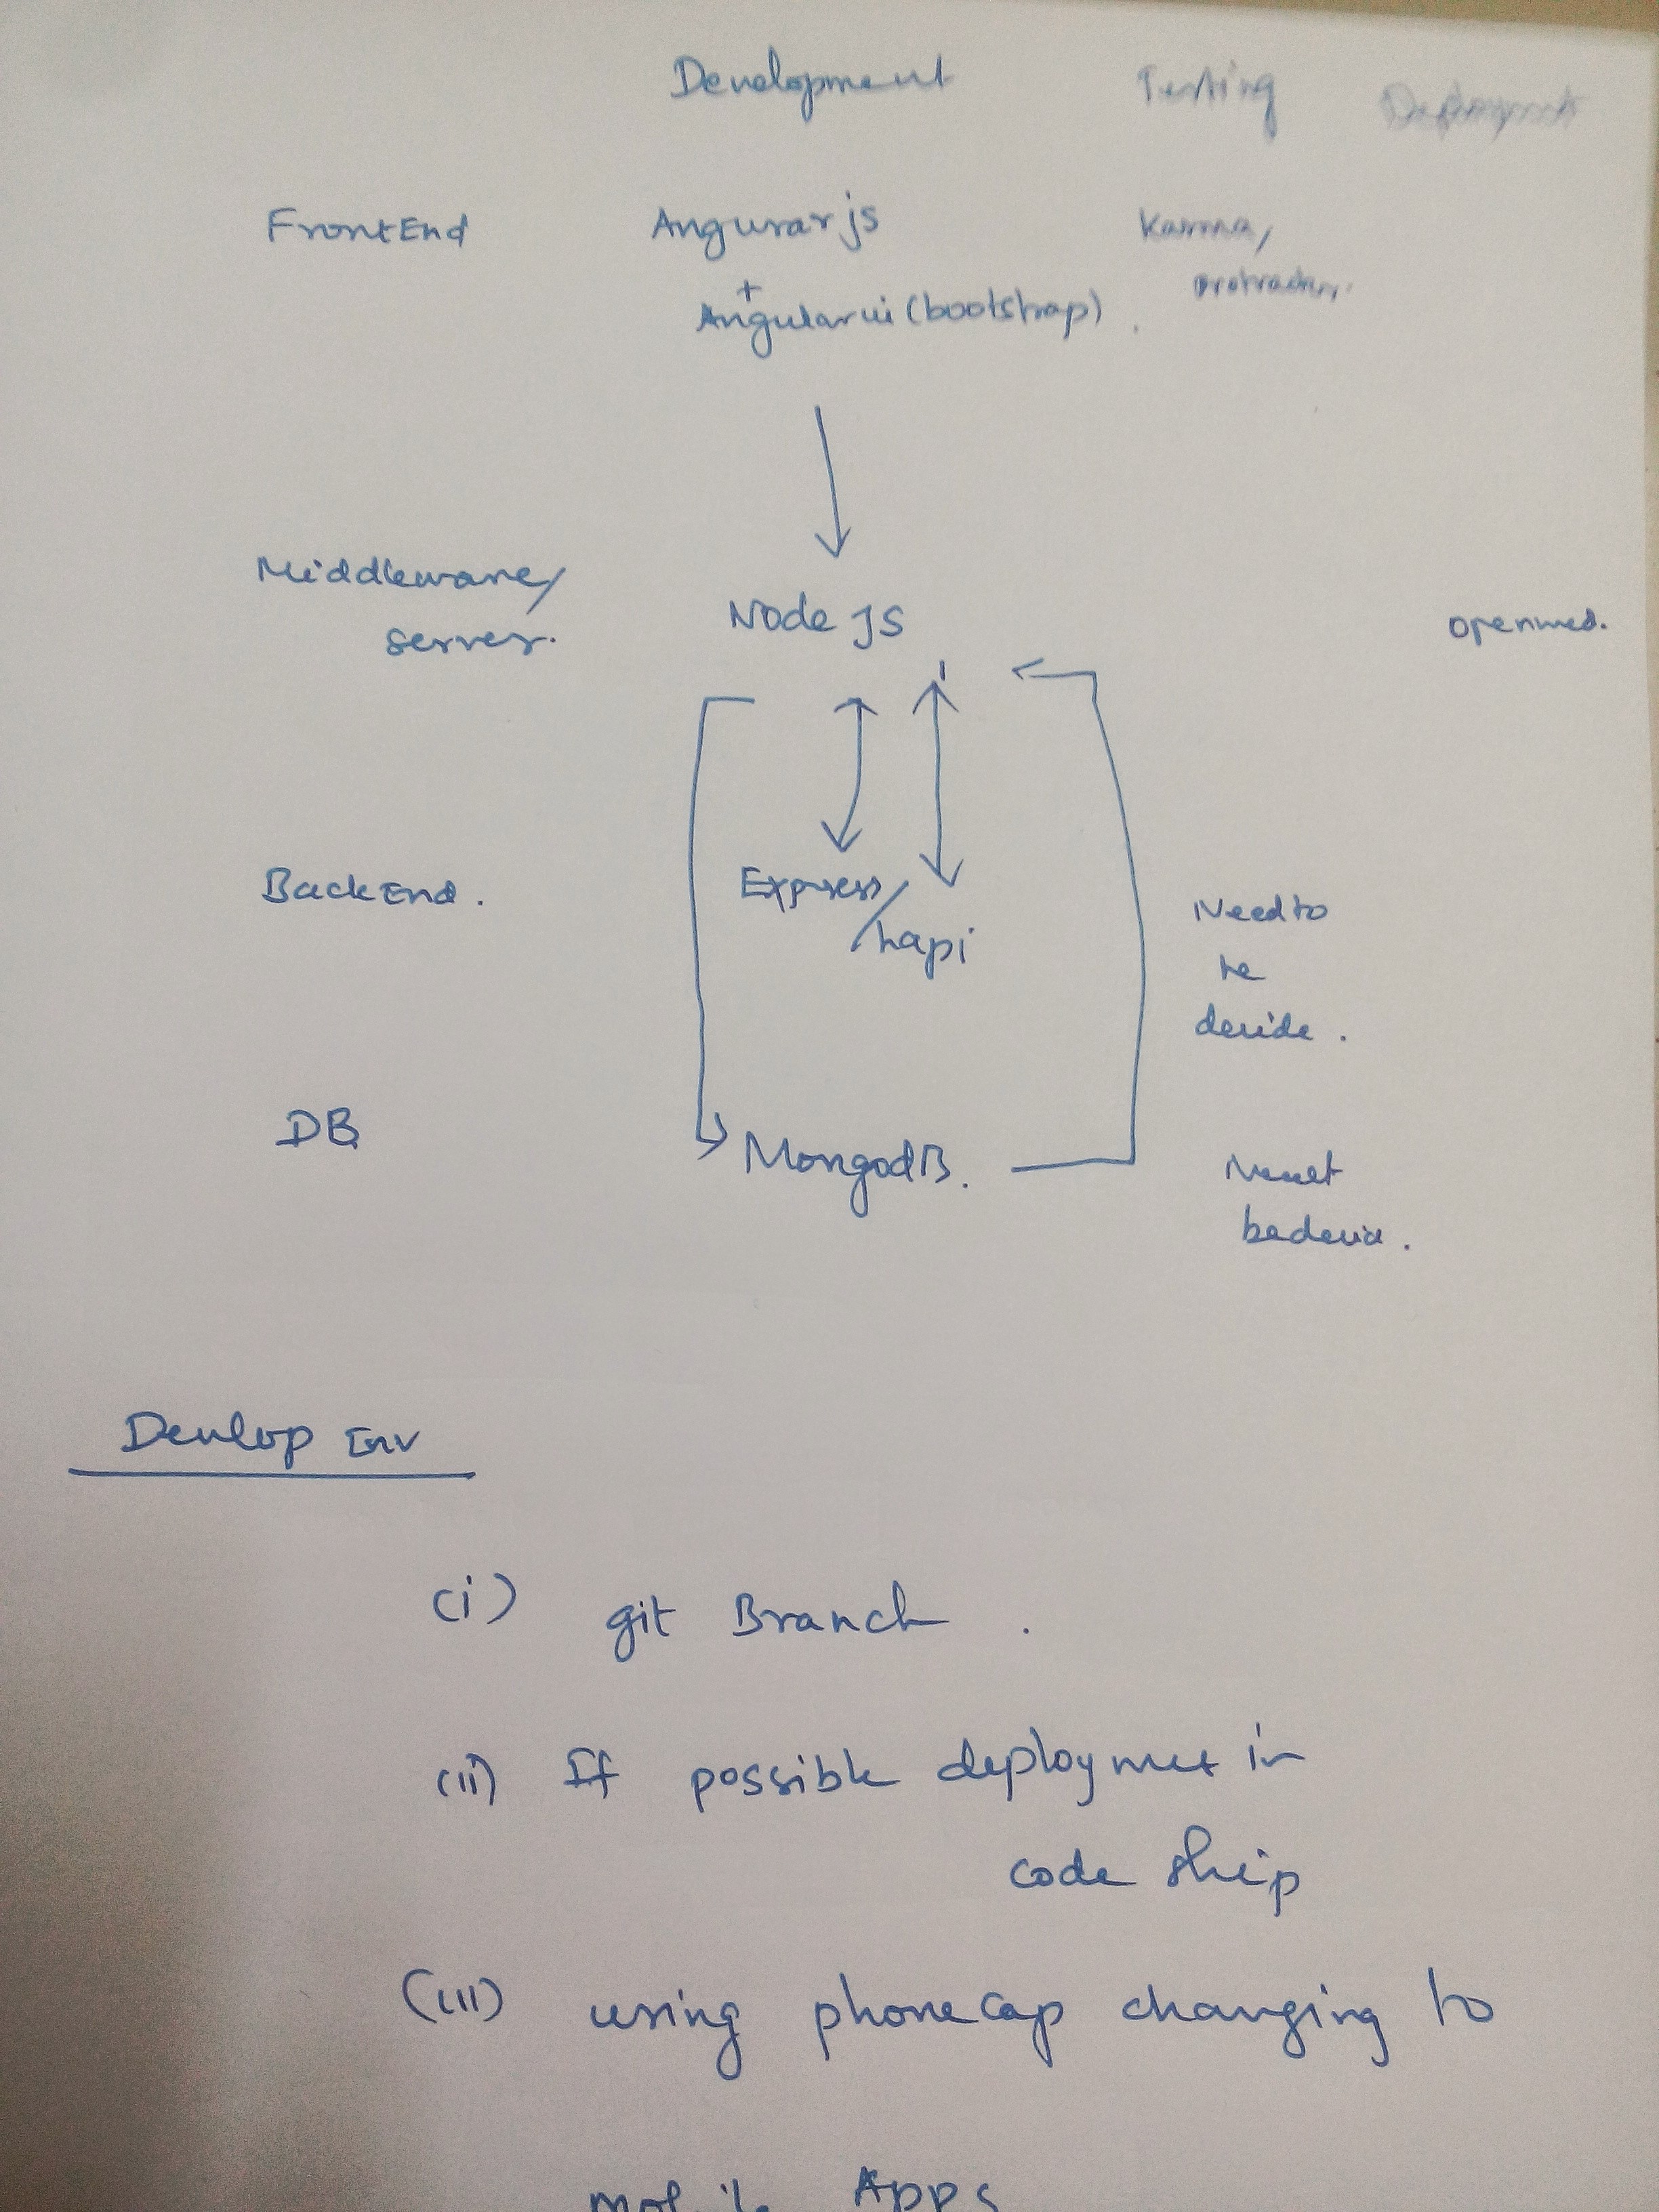 Development Testing Deployment
FrontEnd Angurarjs Karma,
+ protractor.
Angularui (bootstrap).
Middleware/
Node JS
server. openmed.
BackEnd. Express/
hapi
Need to
be
decide.
DB
MongodB.
Develop Env
(i) git Branch.
(ii) If possible deployment in
code ship
(iii) using phonecap changing to
mobile Apps